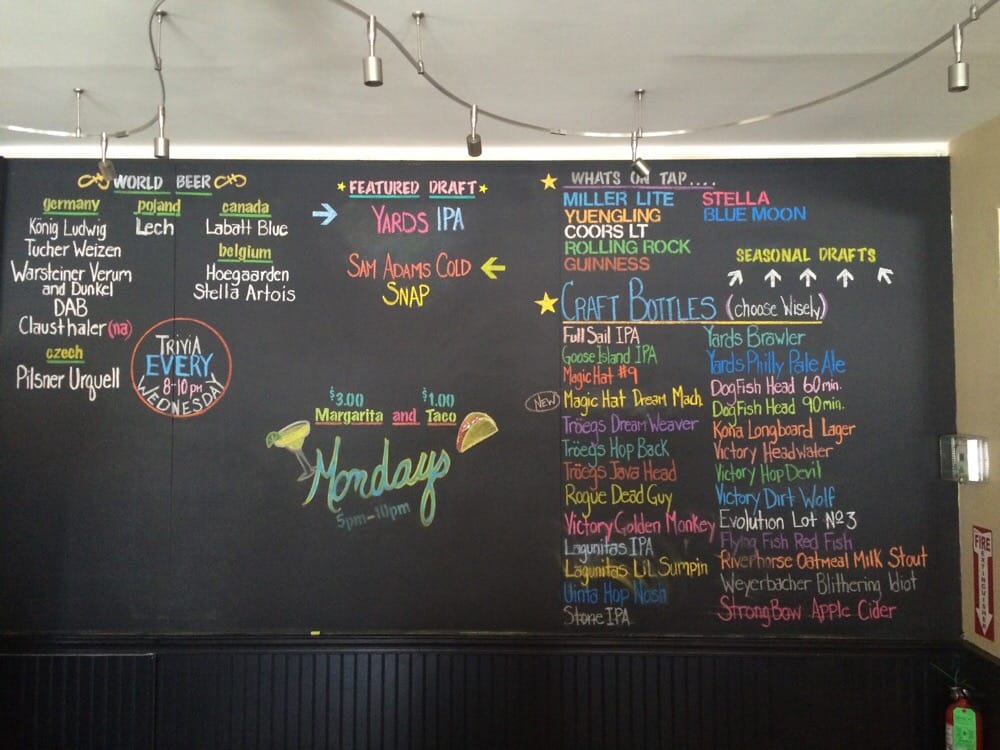 WORLD BEER
germany
König Ludwig
Tucher Weizen
Warsteiner Verum
and Dunkel
DAB
Clausthaler (na)
czech
Pilsner Urquell
poland
Lech
canada
Labatt Blue
belgium
Hoegaarden
Stella Artois
TRIVIA
EVERY
8-10 pm
WEDNESDAY
FEATURED DRAFT
YARDS IPA
SAM ADAMS COLD
SNAP
$3.00 $1.00
Margarita and Taco
Mondays
5pm-10pm
WHATS ON TAP....
MILLER LITE
YUENGLING
COORS LT
ROLLING ROCK
GUINNESS
STELLA
BLUE MOON
SEASONAL DRAFTS
CRAFT BOTTLES (choose Wisely)
Full Sail IPA
Goose Island IPA
Magic Hat #9
NEW Magic Hat Dream Mach.
Tröegs Dream Weaver
Tröegs Hop Back
Tröegs Java Head
Rogue Dead Guy
Victory Golden Monkey
Lagunitas IPA
Lagunitas Lil Sumpin
Uinta Hop Nosh
Stone IPA
Yards Brawler
Yards Philly Pale Ale
DogFish Head 60 min.
DogFish Head 90 min.
Kona Longboard Lager
Victory Headwater
Victory Hop Devil
Victory Dirt Wolf
Evolution Lot Nº3
Flying Fish Red Fish
Riverhorse Oatmeal Milk Stout
Weyerbacher Blithering Idiot
StrongBow Apple Cider
FIRE
EXTINGUISHER